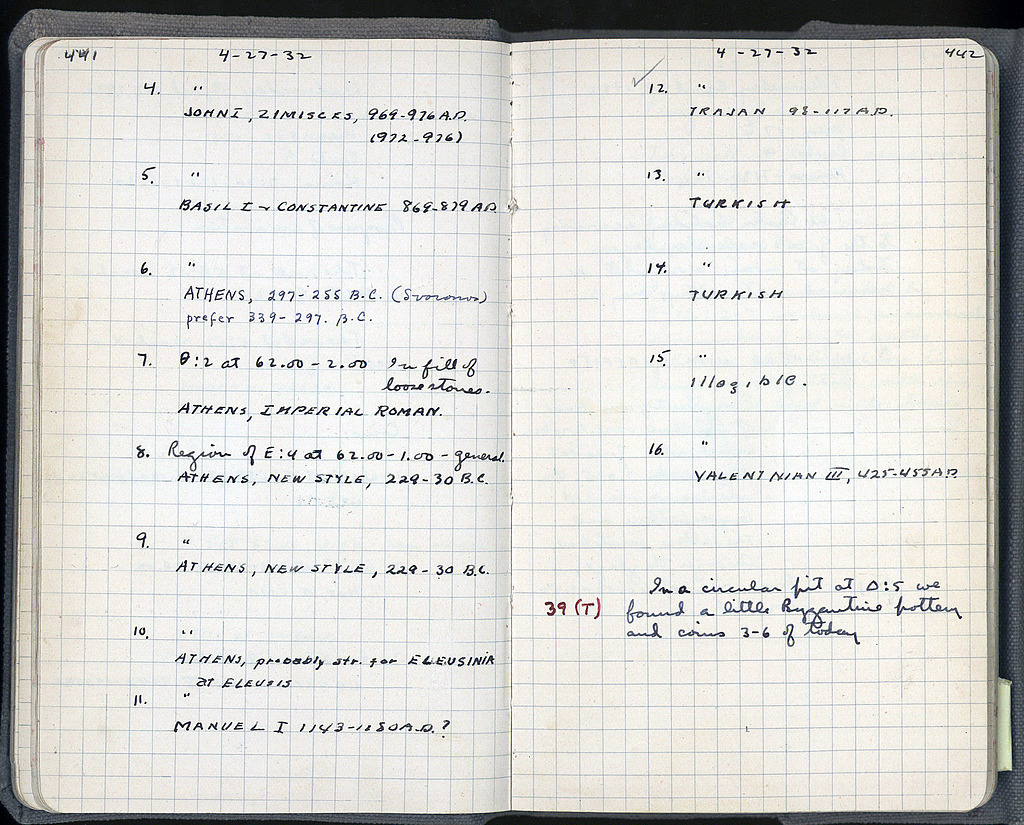 441 4-27-32
4. "
JOHN I, ZIMISCES, 969-976 A.D.
(972-976)
5. "
BASIL I ~ CONSTANTINE 869-879 A.D.
6. "
ATHENS, 297-255 B.C. (Svoronos)
prefer 339-297. B.C.
7. Θ:2 at 62.00-2.00 In fill of
loose stones.
ATHENS, IMPERIAL ROMAN.
8. Region of E:4 at 62.00-1.00 - general.
ATHENS, NEW STYLE, 229-30 B.C.
9. "
ATHENS, NEW STYLE, 229-30 B.C.
10. "
ATHENS, probably str. for ELEUSINIA
at ELEUSIS
11. "
MANUEL I 1143-1180 A.D.?
4-27-32 442
12. "
TRAJAN 98-117 A.D.
13. "
TURKISH
14. "
TURKISH
15. "
illegible.
16. "
VALENTINIAN III, 425-455 A.D.
In a circular pit at Δ:5 we
39 (T) found a little Byzantine pottery
and coins 3-6 of today